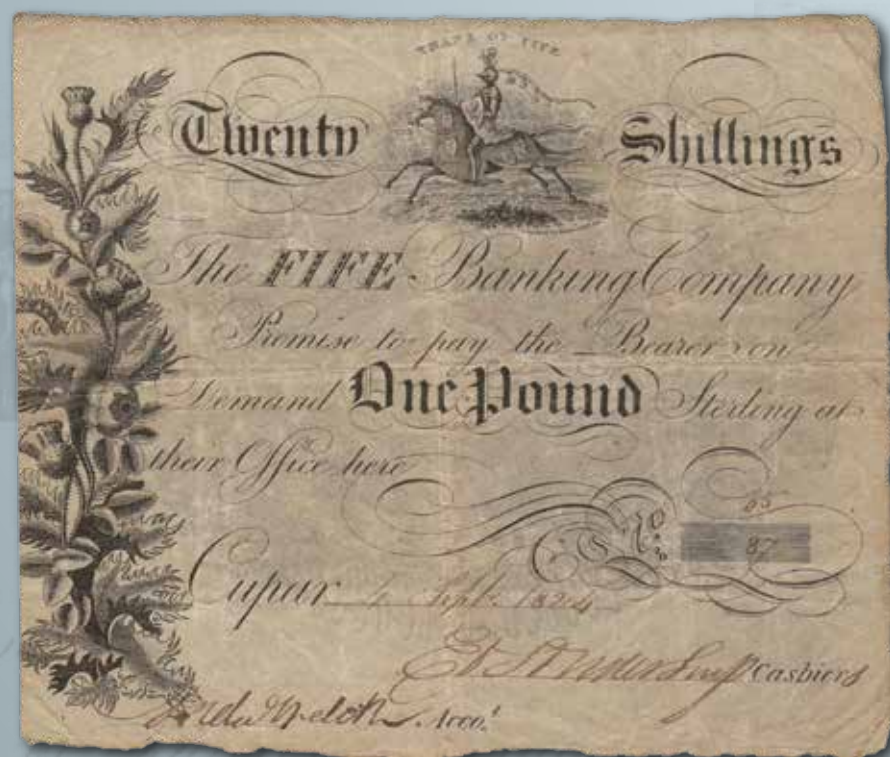 THANE OF FIFE
Twenty Shillings
The FIFE Banking Company
Promise to pay the Bearer on
Demand One Pound Sterling at
their Office here
65
No. 87
Cupar 4 Sept. 1824
Cashiers
Acco.t